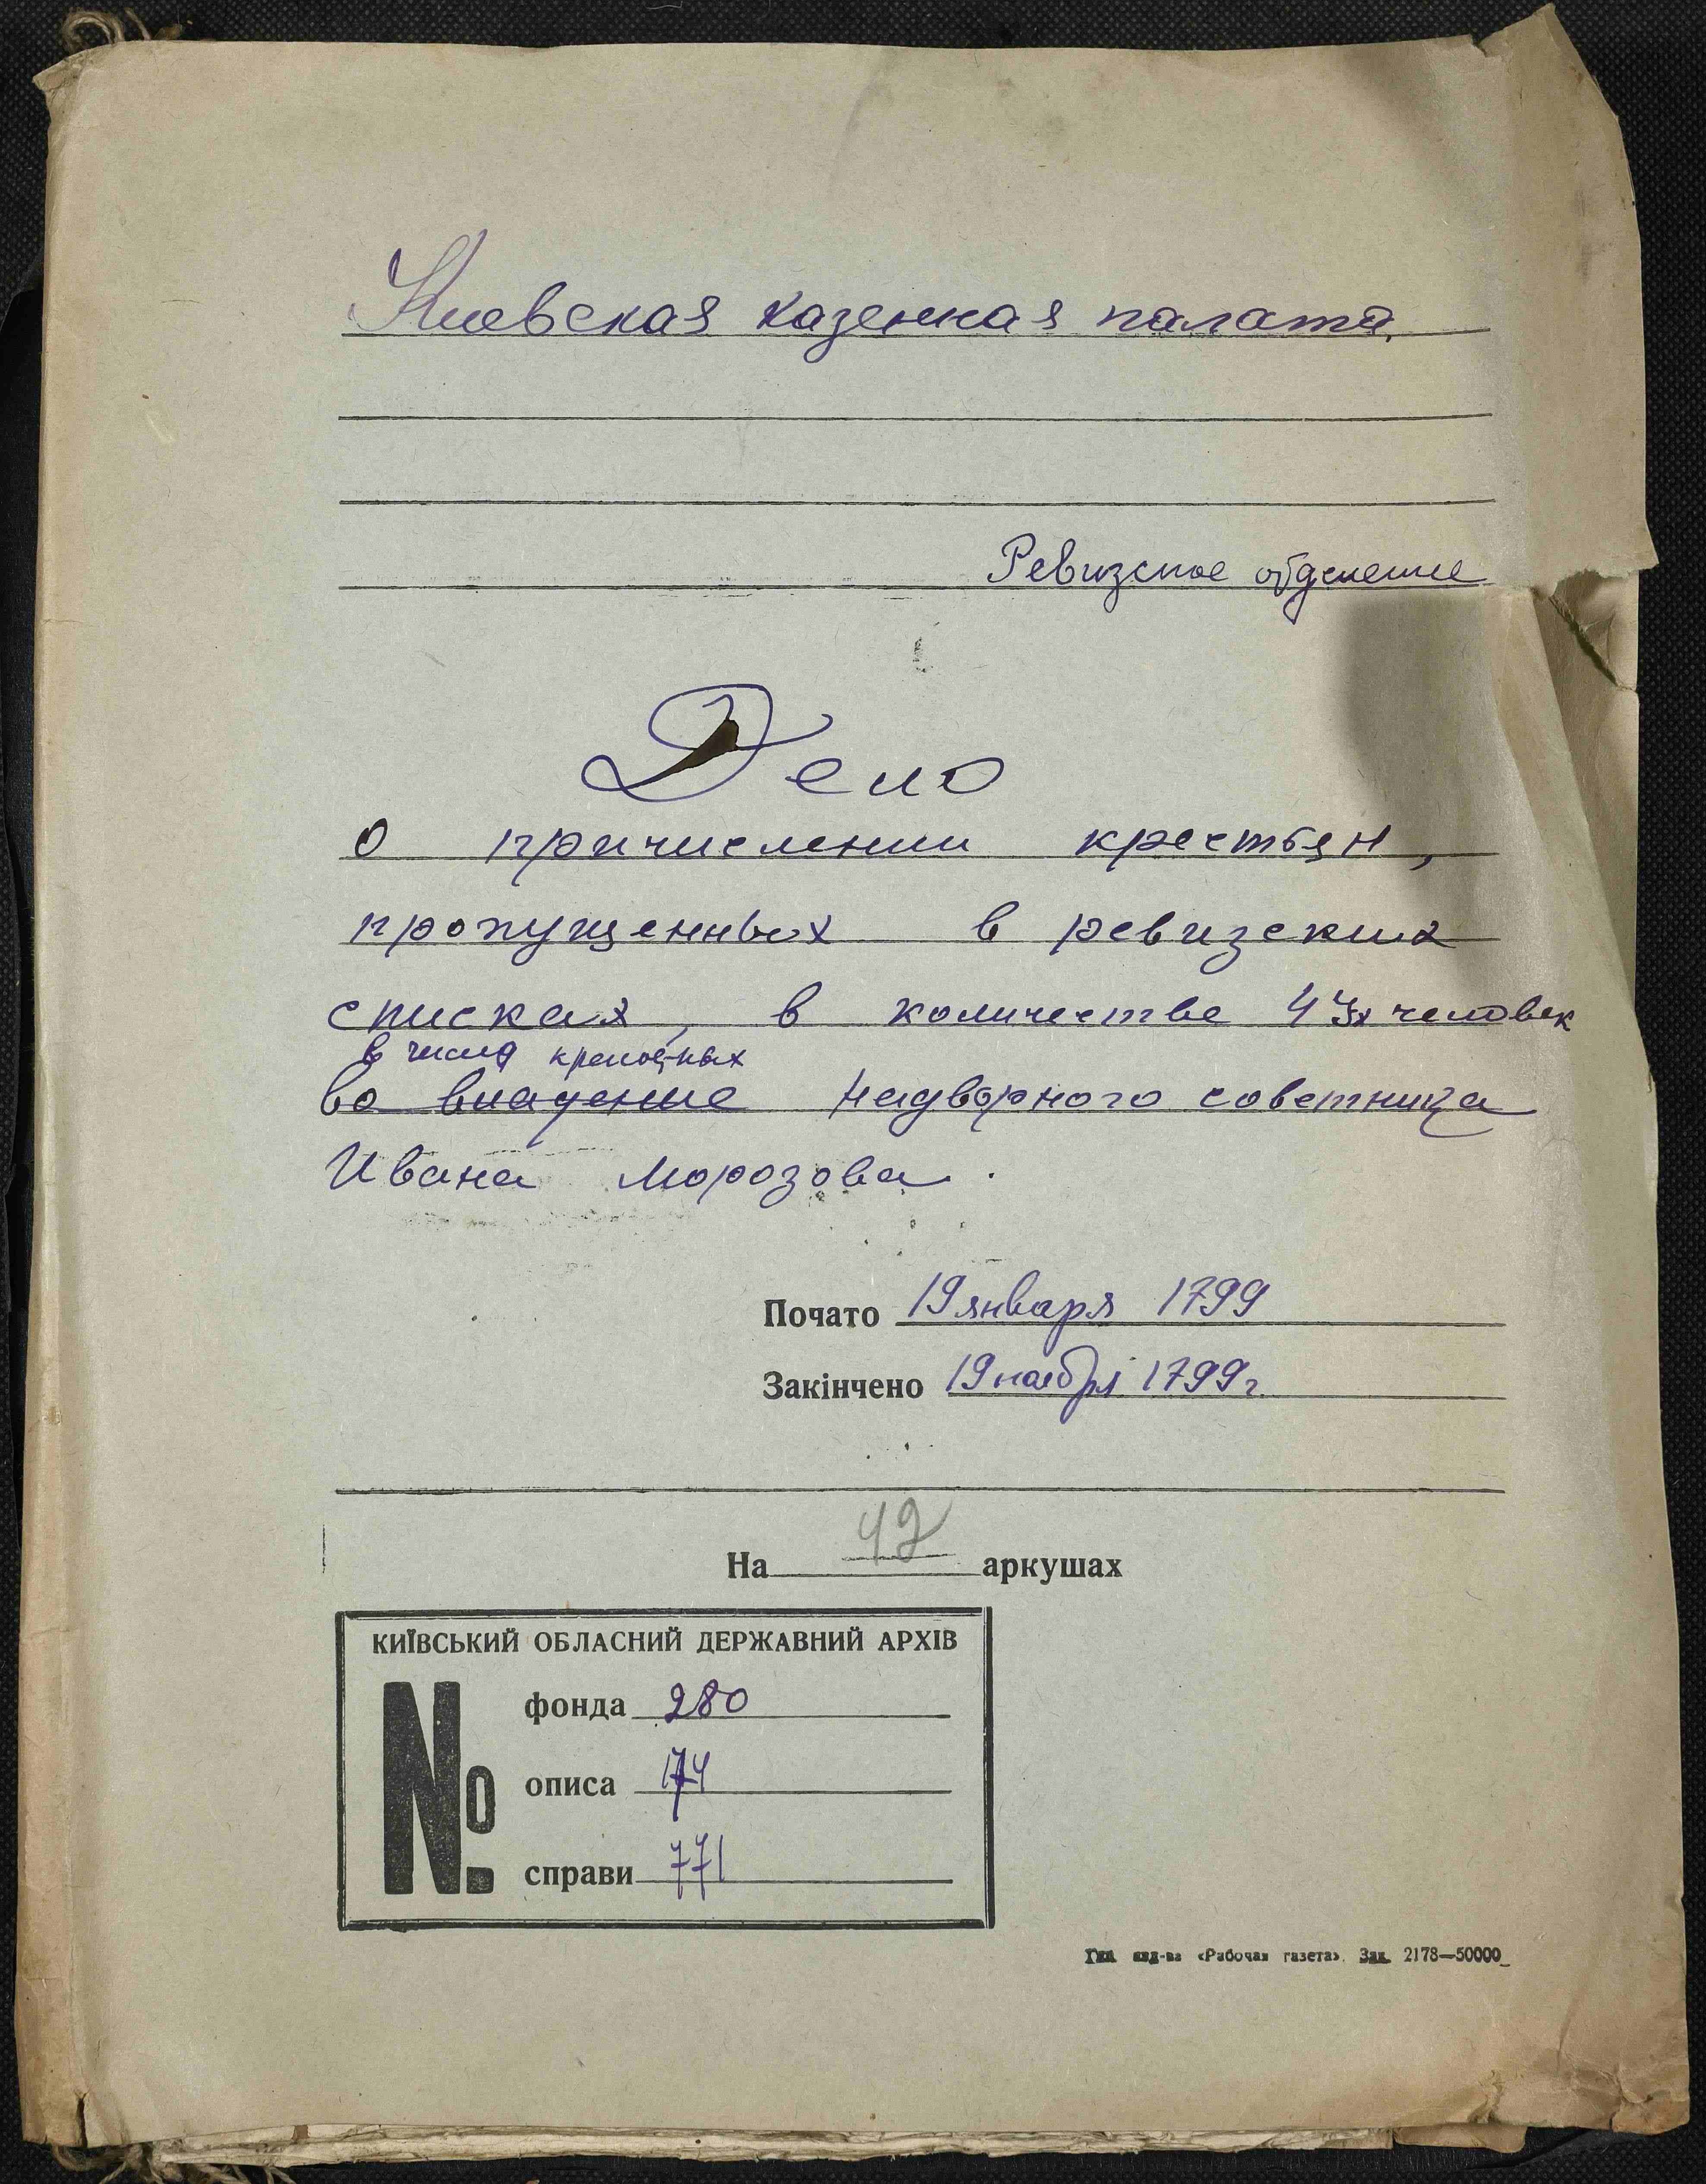 Киевская казенная палата.
Ревизское отделение
Дело
о причислении крестьян,
пропущенных в ревизских
списках, в количестве 43х человек
в число крепостных
во владение надворного советника
Ивана Морозова.
Почато 19 января 1799
Закінчено 19 ноября 1799 г.
На 42 аркушах
КИЇВСЬКИЙ ОБЛАСНИЙ ДЕРЖАВНИЙ АРХІВ
№
фонда 280
описа 174
справи 771
«Рабочая газета». Зак. 2178—50000